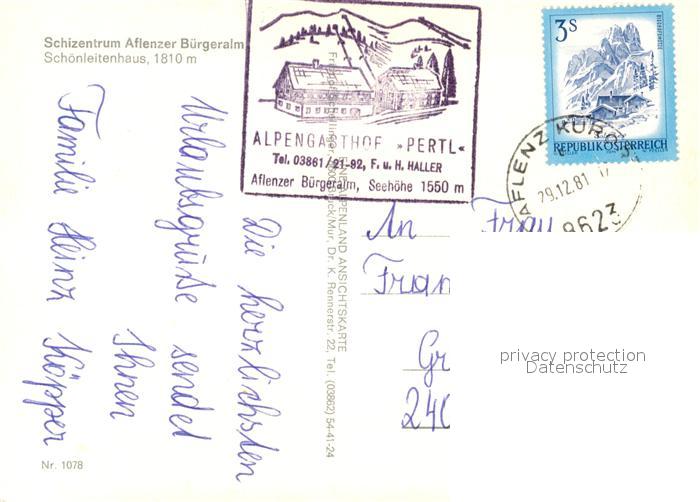 Schizentrum Aflenzer Bürgeralm
Schönleitenhaus, 1810 m
ALPENGASTHOF »PERTL«
Tel. 03861/21-92, F. u. H. HALLER
Aflenzer Bürgeralm, Seehöhe 1550 m
3S
REPUBLIK ÖSTERREICH
AFLENZ KURORT
29.12.81
8623
Die herzlichsten
Urlaubsgrüße sendet
Ihnen
Familie Heinz Köpper
ALPENLAND ANSICHTSKARTE
Bruck/Mur, Dr. K. Rennerstr. 22, Tel. (03862) 54-41-24
An Frau
Fran
Gr
240
privacy protection
Datenschutz
Nr. 1078